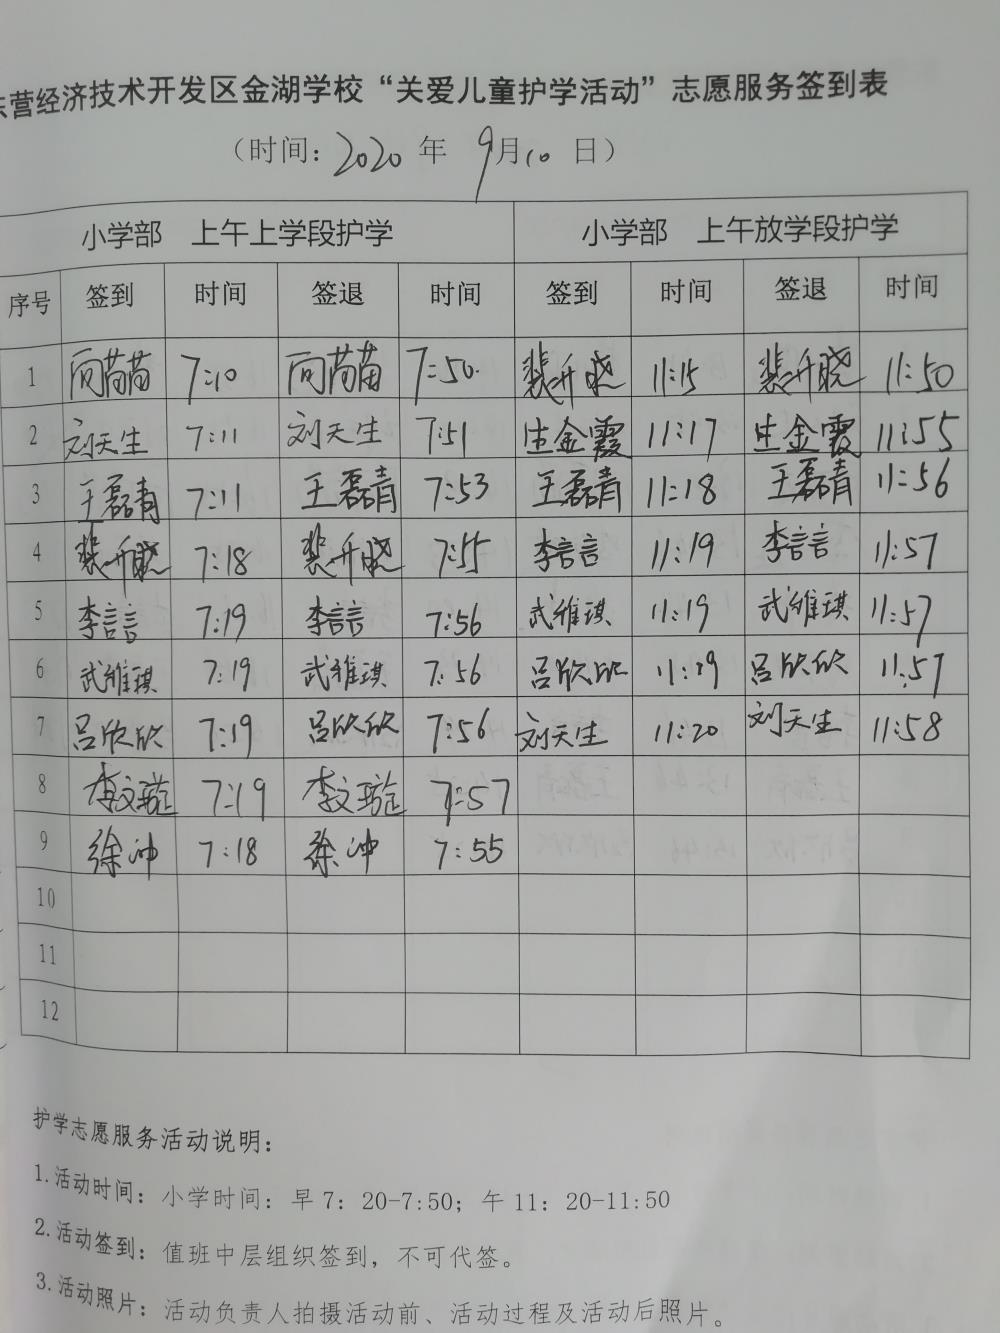 东营经济技术开发区金湖学校“关爱儿童护学活动”志愿服务签到表
（时间：2020 年 9月10 日）
小学部 上午上学段护学 小学部 上午放学段护学
序号 签到 时间 签退 时间 签到 时间 签退 时间
1 闫苗苗 7:10 闫苗苗 7:50 裴升晓 11:15 裴升晓 11:50
2 刘天生 7:11 刘天生 7:51 生金霞 11:17 生金霞 11:55
3 王磊青 7:11 王磊青 7:53 王磊青 11:18 王磊青 11:56
4 裴升晓 7:18 裴升晓 7:55 李言言 11:19 李言言 11:57
5 李言言 7:19 李言言 7:56 武维琪 11:19 武维琪 11:57
6 武维琪 7:19 武维琪 7:56 吕欣欣 11:19 吕欣欣 11:57
7 吕欣欣 7:19 吕欣欣 7:56 刘天生 11:20 刘天生 11:58
8 李文璇 7:19 李文璇 7:57
9 徐冲 7:18 徐冲 7:55
10
11
12
护学志愿服务活动说明：
1.活动时间：小学时间：早 7：20-7:50；午 11：20-11:50
2.活动签到：值班中层组织签到，不可代签。
3.活动照片：活动负责人拍摄活动前、活动过程及活动后照片。